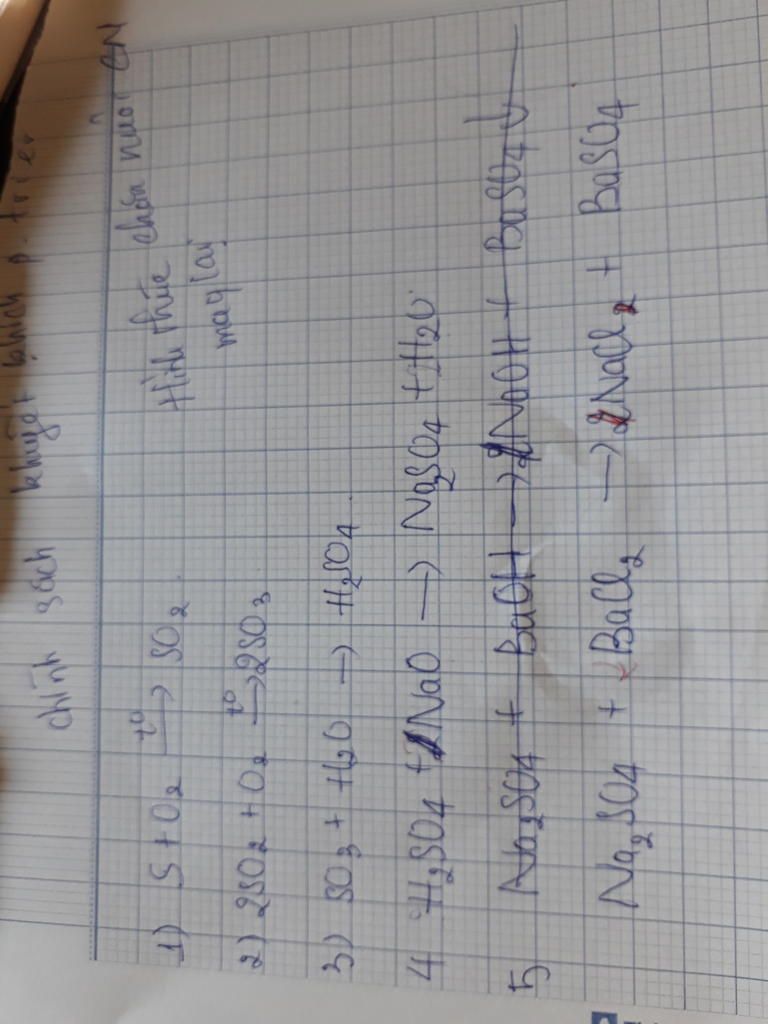 chính sách khuyết khích p. triển
Hình thức chăn nuôi CN
may lai
1) S + O₂ →(t°) SO₂.
2) 2SO₂ + O₂ →(t°) 2SO₃
3) SO₃ + H₂O → H₂SO₄.
4 H₂SO₄ + 2NaO → Na₂SO₄ + H₂O.
5 Na₂SO₄ + BaOH → 2NaOH + BaSO₄↓
Na₂SO₄ + BaCl₂ → 2NaCl₂ + BaSO₄